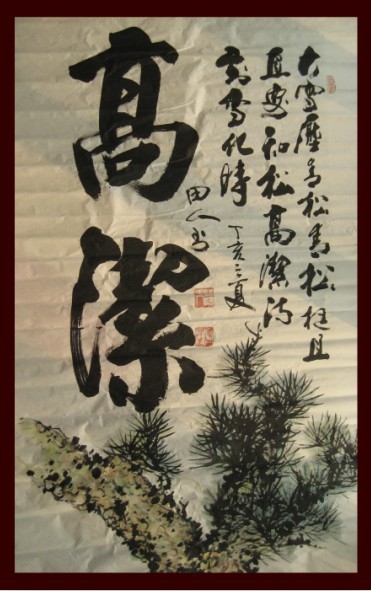 髙潔
大雪壓青松青松挺且
直要知松高潔待
到雪化時
丁亥之夏
田人书